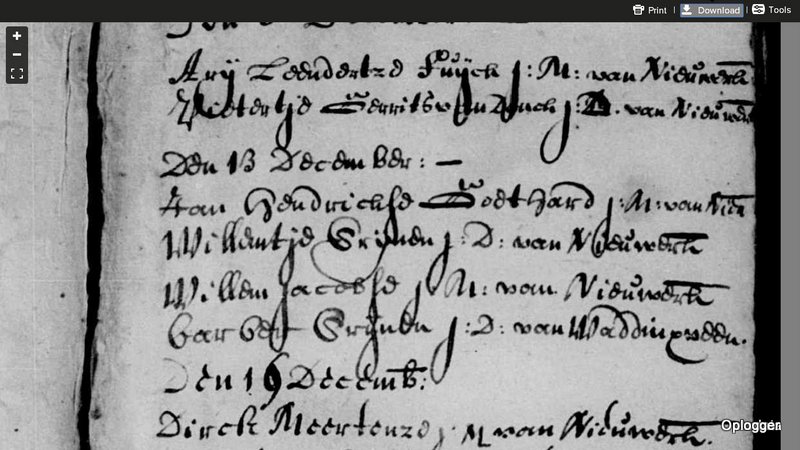 Print | Download | Tools
Arÿ Leendertze Fuÿck j: M: van Nieuwerk
Pietertje Gerrits van j: D. van Nieuwerk
Den 13 December: —
Jan Hendrickse Goethard j: M: van Nieu
Willemtje Crijnen j: D: van Nieuwerk
Willem Jacobse j. M: van Nieuwerk
barber Crijnen j: D: van Waddinxveen.
Den 19 Decemb:
Dirck Meertenze j. M van Nieuwerk.